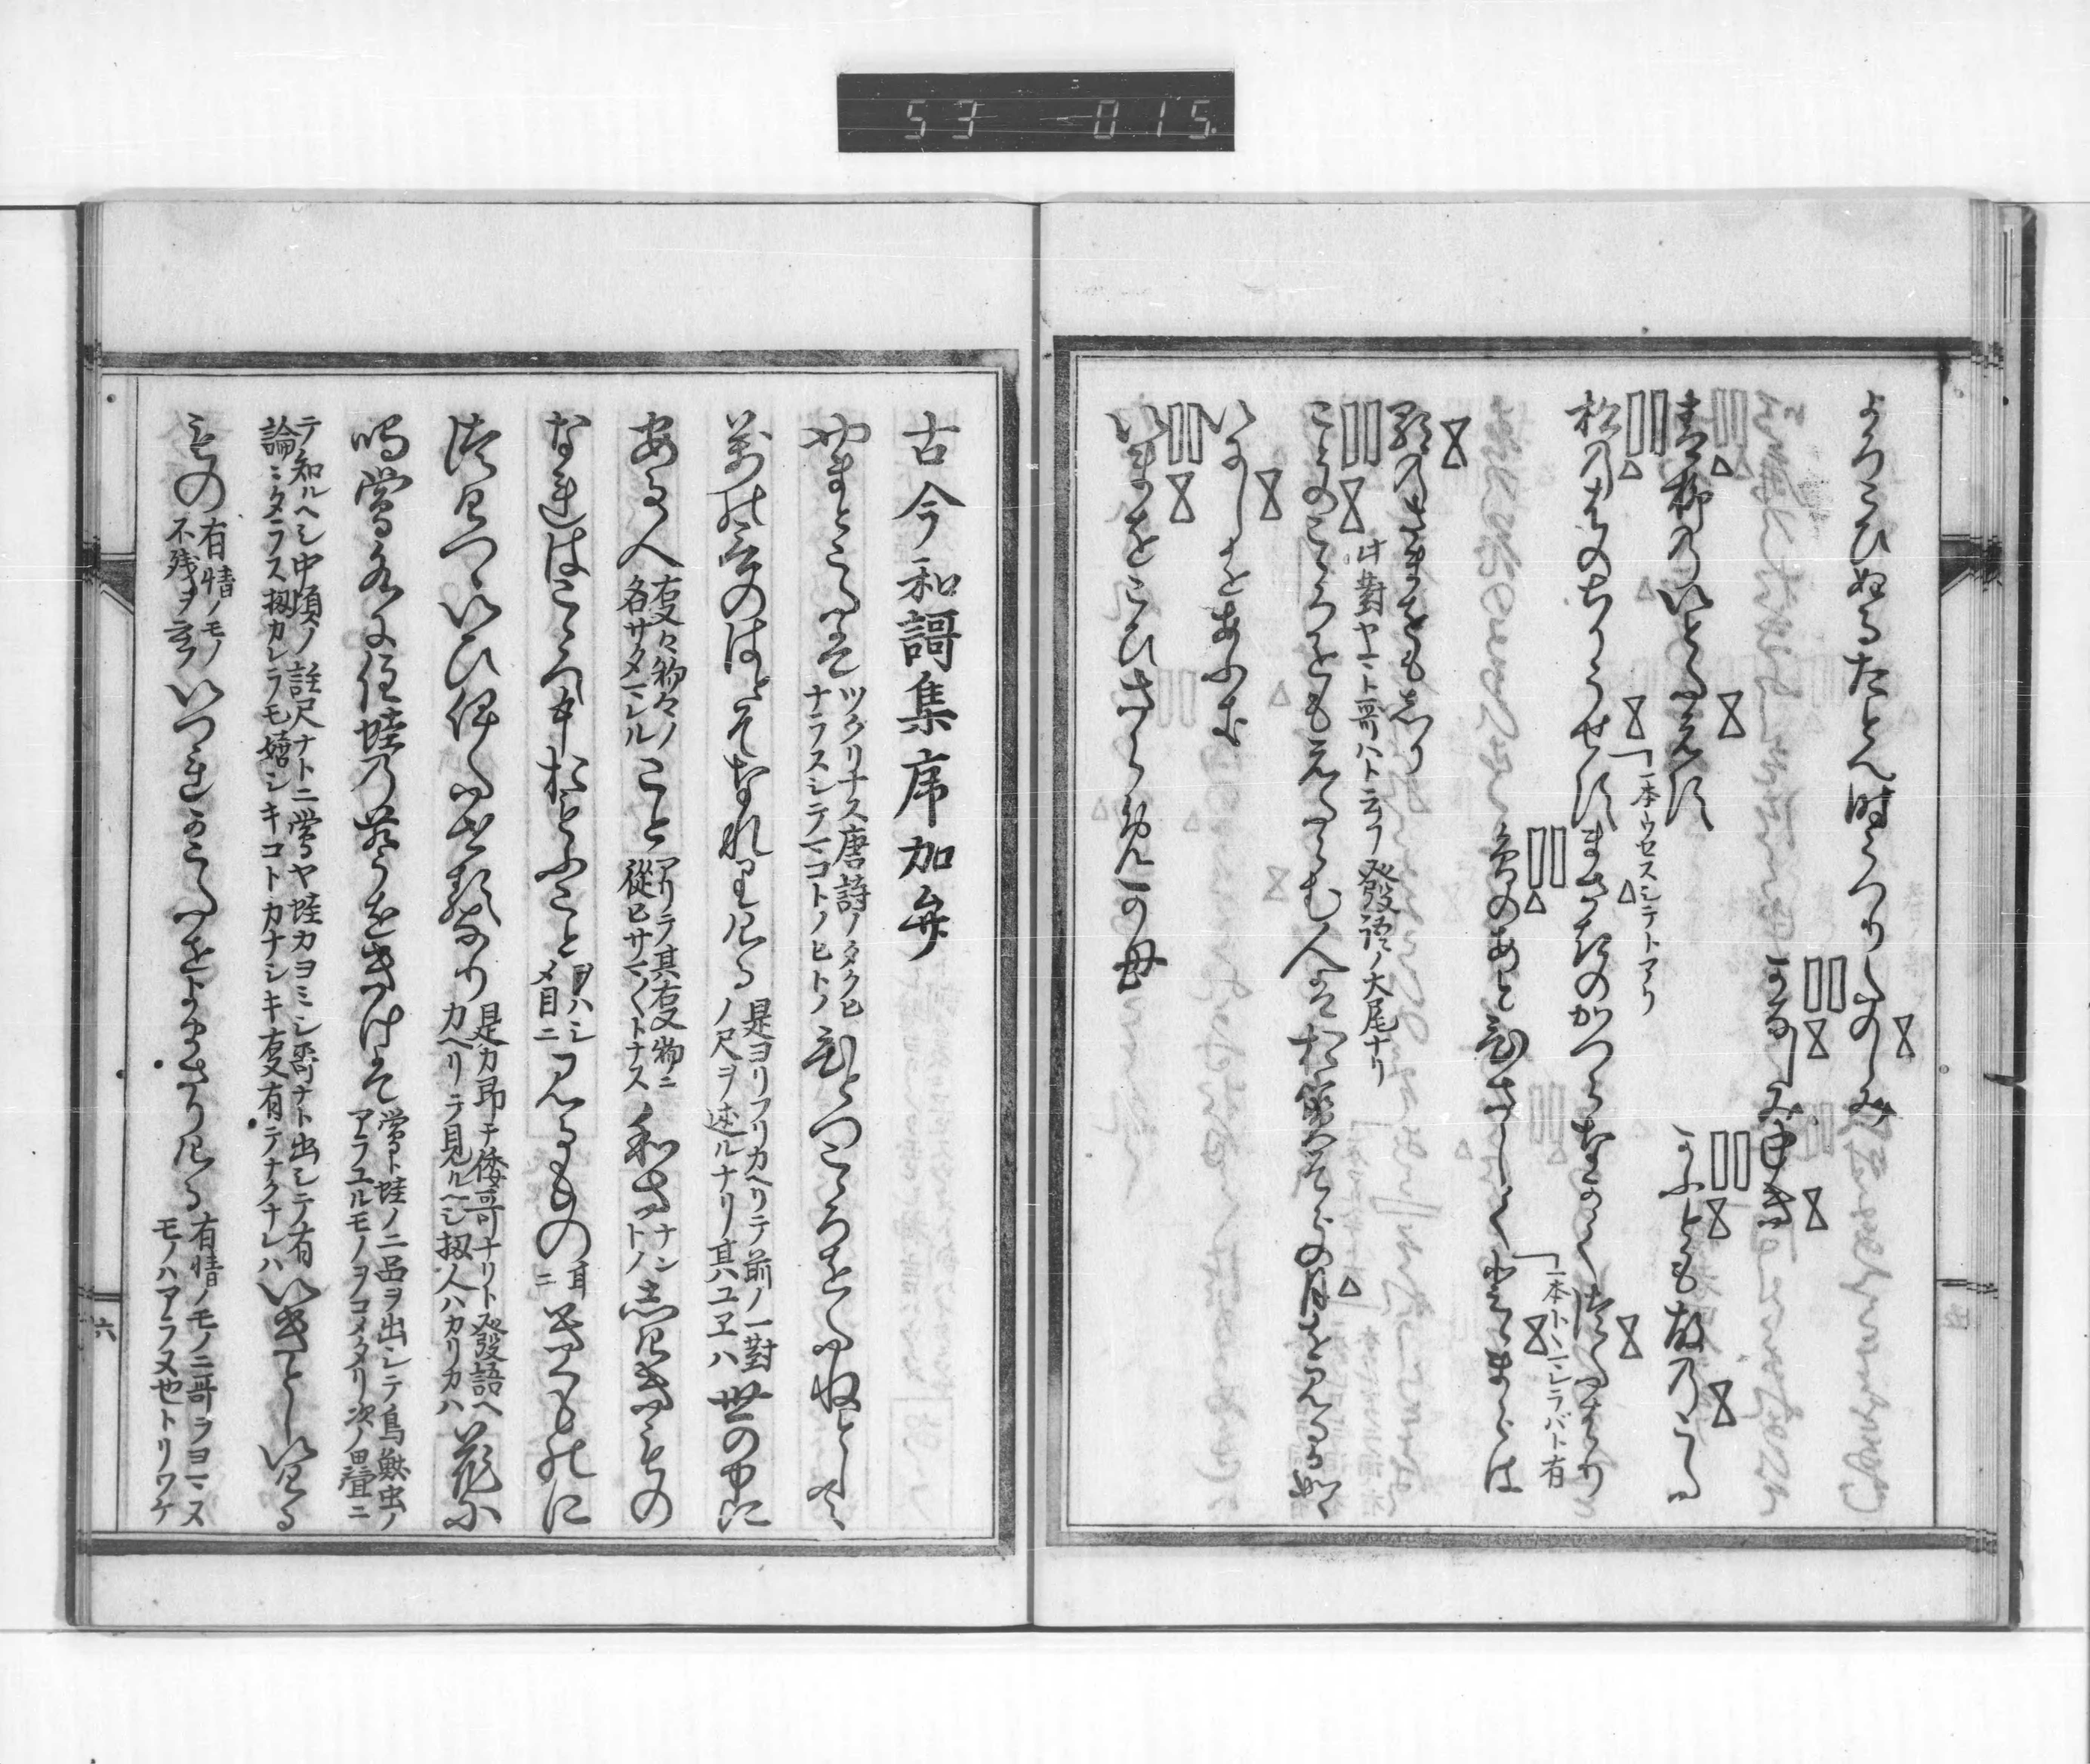 53 015.
よろこひぬるたとへ時うつりたのしみ
かなしみゆき
かふとも故のうる
青柳のいとたえす
松のはのちりうせす
一本ウセスシテトアリ
まさきのかつらなかくつたはり
鳥のあと久しく
とゝまらは
一本トヽマレラバト有
歌のさまをもしり
此對ヤマト哥ハト云フ発語ノ大尾ナリ
ことのこゝろをもえたらむ人はおほそらの月を見るか如く
いにしへをあふき
いまをこひさらめかも
古今和謌集序加弁
やまとうたは
ツクリナス唐詩ノタクヒ
ナラスシテマコトノヒトノ
ひとつこゝろをたねとして
萬のことのはとそなれりける
是ヨリフリカヘリテ前ノ一對
ノ尺ヲ述ルナリ其ハユヱハ
世の中に
ある人
各サタマレル
こと
アリテ其
從ヒサマ〳〵トナス
わさ
ナン
トノ
しけきもの
なれはこゝろにおもふこと
ヲハシ
メ目ニ
見るもの
耳
ニ
きくものに
つけていひ出せるなり
是カ即チ倭哥ナリト発語ヘ
カヘリテ見ルヘシ扨人ハカリカハ
花に
鳴鶯水に住蛙の声をきけは
鶯ト蛙ノ二品ヲ出シテ鳥獣虫ノ
アラユルモノヲコメタリ次ノ畳ニ
テ知ルヘシ中頃ノ註尺ナトニ鶯ヤ蛙カヨミシ哥ナト出シテ有
論ニタラス扨カレラモ嬉シキコトカナシキ
いきとしいける
もの
有情ノモノ
不残ヲ云フ
いつれかうたをよまさりける
有情ノモノニ哥ヲヨマヌ
モノハアラヌ也トリワケ
六